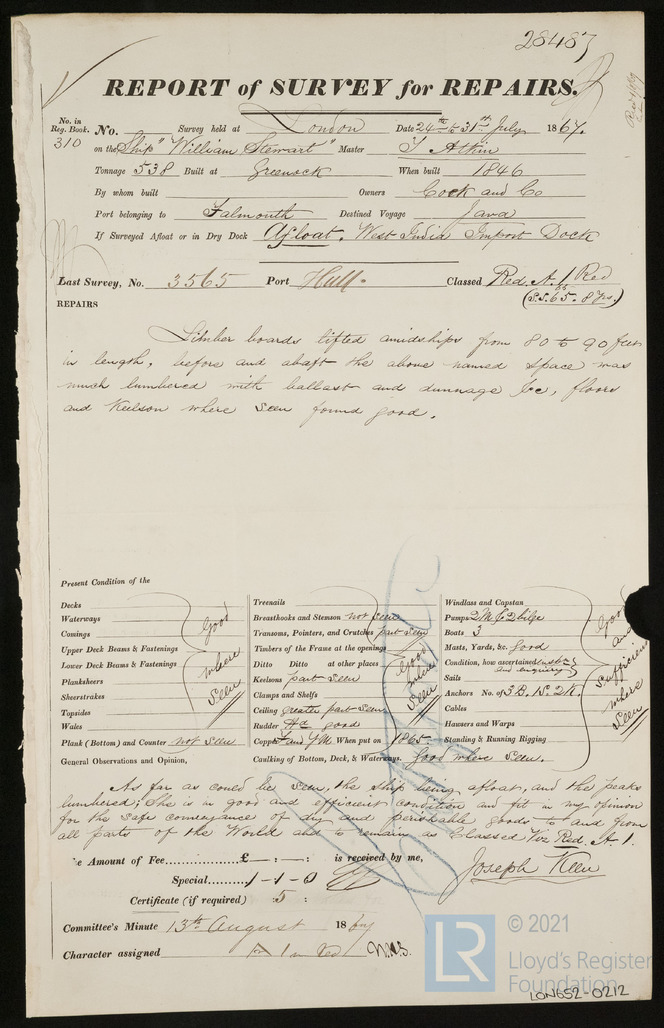 28487
REPORT of SURVEY for REPAIRS.
No. in Reg. Book. No. Survey held at London Date 24th to 31st July 1867.
310 on the Ship "William Stewart" Master T Atkin
Tonnage 538 Built at Greenock When built 1846
By whom built Owners Cock and Co
Port belonging to Falmouth Destined Voyage Java
If Surveyed Afloat or in Dry Dock Afloat. West India Import Dock
Last Survey, No. 3565 Port Hull Classed Red A.1 Red
(S.S. 65. 8 Yrs.)
REPAIRS
Limber boards lifted amidships from 80 to 90 feet
in length, before and abaft the above named space was
much lumbered with ballast and dunnage &c, floors
and Keelson where seen found good.
Present Condition of the
Decks
Waterways
Comings
Upper Deck Beams & Fastenings
Lower Deck Beams & Fastenings
Planksheers
Sheerstrakes
Topsides
Wales
Good where seen
Plank (Bottom) and Counter not seen
Treenails
Breasthooks and Stemson not seen
Transoms, Pointers, and Crutches part seen
Timbers of the Frame at the openings
Ditto Ditto at other places
Keelsons part seen
Clamps and Shelfs
Ceiling greater part seen
Rudder good
Good where seen
Copper Y and YM When put on 1865.
Caulking of Bottom, Deck, & Waterways. Good where seen.
Windlass and Capstan
Pumps 2 M & 2 bilge
Boats 3
Masts, Yards, &c. Good
Condition, how ascertained
and enquiry
Sails
Anchors No. of 3B. 1S. 2K.
Cables
Hawsers and Warps
Standing & Running Rigging
Good and sufficient where seen
General Observations and Opinion,
As far as could be seen, the ship being afloat, and the peaks
lumbered; She is in good and efficient condition and fit in my opinion
for the safe conveyance of dry and perishable goods to and from
all parts of the World and to remain as Classed Viz Red. A 1.
The Amount of Fee £ — : — : is received by me,
Special 1 - 1 - 0 Joseph Keen
Certificate (if required) 5 :
Committee's Minute 13th August 1867
Character assigned A 1 in red
© 2021
LR
Lloyd's Register
Foundation
LON652-0212